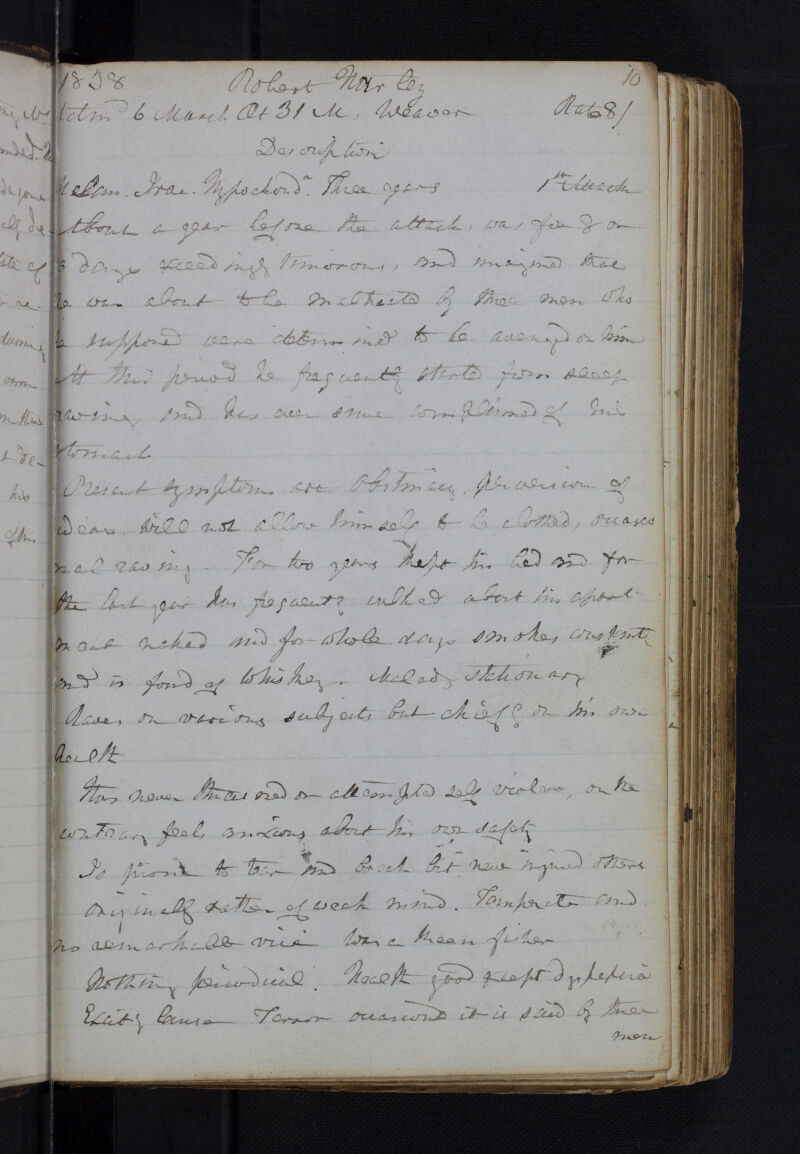 1838 Robert Narley 10
Adm 6 March Æt 31 M. Weaver Rate 8/
Description
Melan. Irac. Hypochond. Three years 1st March
About a year before the attack, was for 2 or
3 days exceedingly timorous, and imagined that
he was about to be maltreated by three men who
he supposed were determined to be avenged on him
At this period he frequently started from sleep
raving, and has ever since complained of his
stomach
Present symptoms are Obstinacy, perversion of
ideas. Will not allow himself to be clothed, occasio
nal raving – For two years kept his bed and for
the last year has frequently walked about his apart-
ment naked and for whole days smokes constantly
and is fond of Whiskey. Malady stationary
Raves on various subjects but chiefly on his own
health
Has never threatened or attempted self violence, on the
contrary feels anxious about his own safety
Is prone to tear and break but never injured others
Originally rather of weak mind. Temperate and
no remarkable vice Was a keen fisher
Nothing periodical. Health good except dyspepsia
Exciting Cause Terror occasioned it is said by three
men